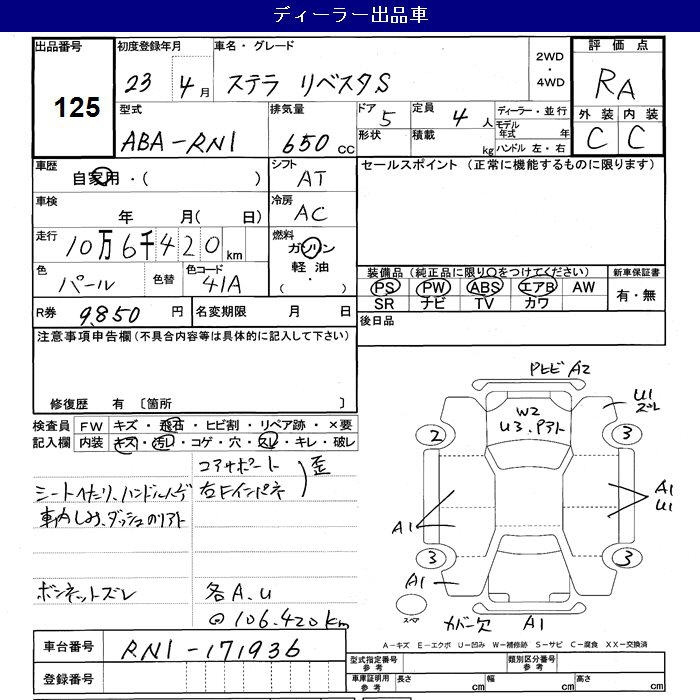 ディーラー出品車
出品番号
125
初度登録年月
23 4月
車名・グレード
ステラ リベスタS
2WD
・
4WD
評価点
RA
外装 内装
C C
型式
ABA-RN1
排気量
650 cc
ドア 5
形状
定員 4人
積載 kg
ディーラー・並行
モデル年式 年
ハンドル 左・右
車歴
自家用・( )
シフト
AT
セールスポイント (正常に機能するものに限ります)
車検
年 月( 日)
冷房
AC
走行
10万6千420km
燃料
ガソリン
軽油
( ・ )
色
パール
色替
色コード
41A
装備品(純正品に限り○をつけてください)
PS PW ABS エアB AW
SR ナビ TV カワ
新車保証書
有・無
R券 9,850 円
名変期限 月 日
後日品
注意事項申告欄(不具合内容等は具体的に記入して下さい)
修復歴 有 〔箇所 〕
検査員記入欄
FW キズ・飛石・ヒビ割・リペア跡・×要
内装 キズ・汚レ・コゲ・穴・スレ・キレ・破レ
コアサポート
右Fインパネ
歪
シートヘたり、ハンドルハゲ
車内しみ、ダッシュのリアト
ボンネットズレ
各A.U
◎106.420km
PヒビA2
W2
U3.Pアト
U1
ズレ
2
3
A1
A1
U1
3
3
A1
スペア
カバー欠
A1
車台番号
RN1-171936
登録番号
A-キズ E-エクボ U-凹み W-補修跡 S-サビ C-腐食 XX-交換済
型式指定番号
参考
類別区分番号
参考
車庫証明用
参考
長さ cm
幅 cm
高さ cm